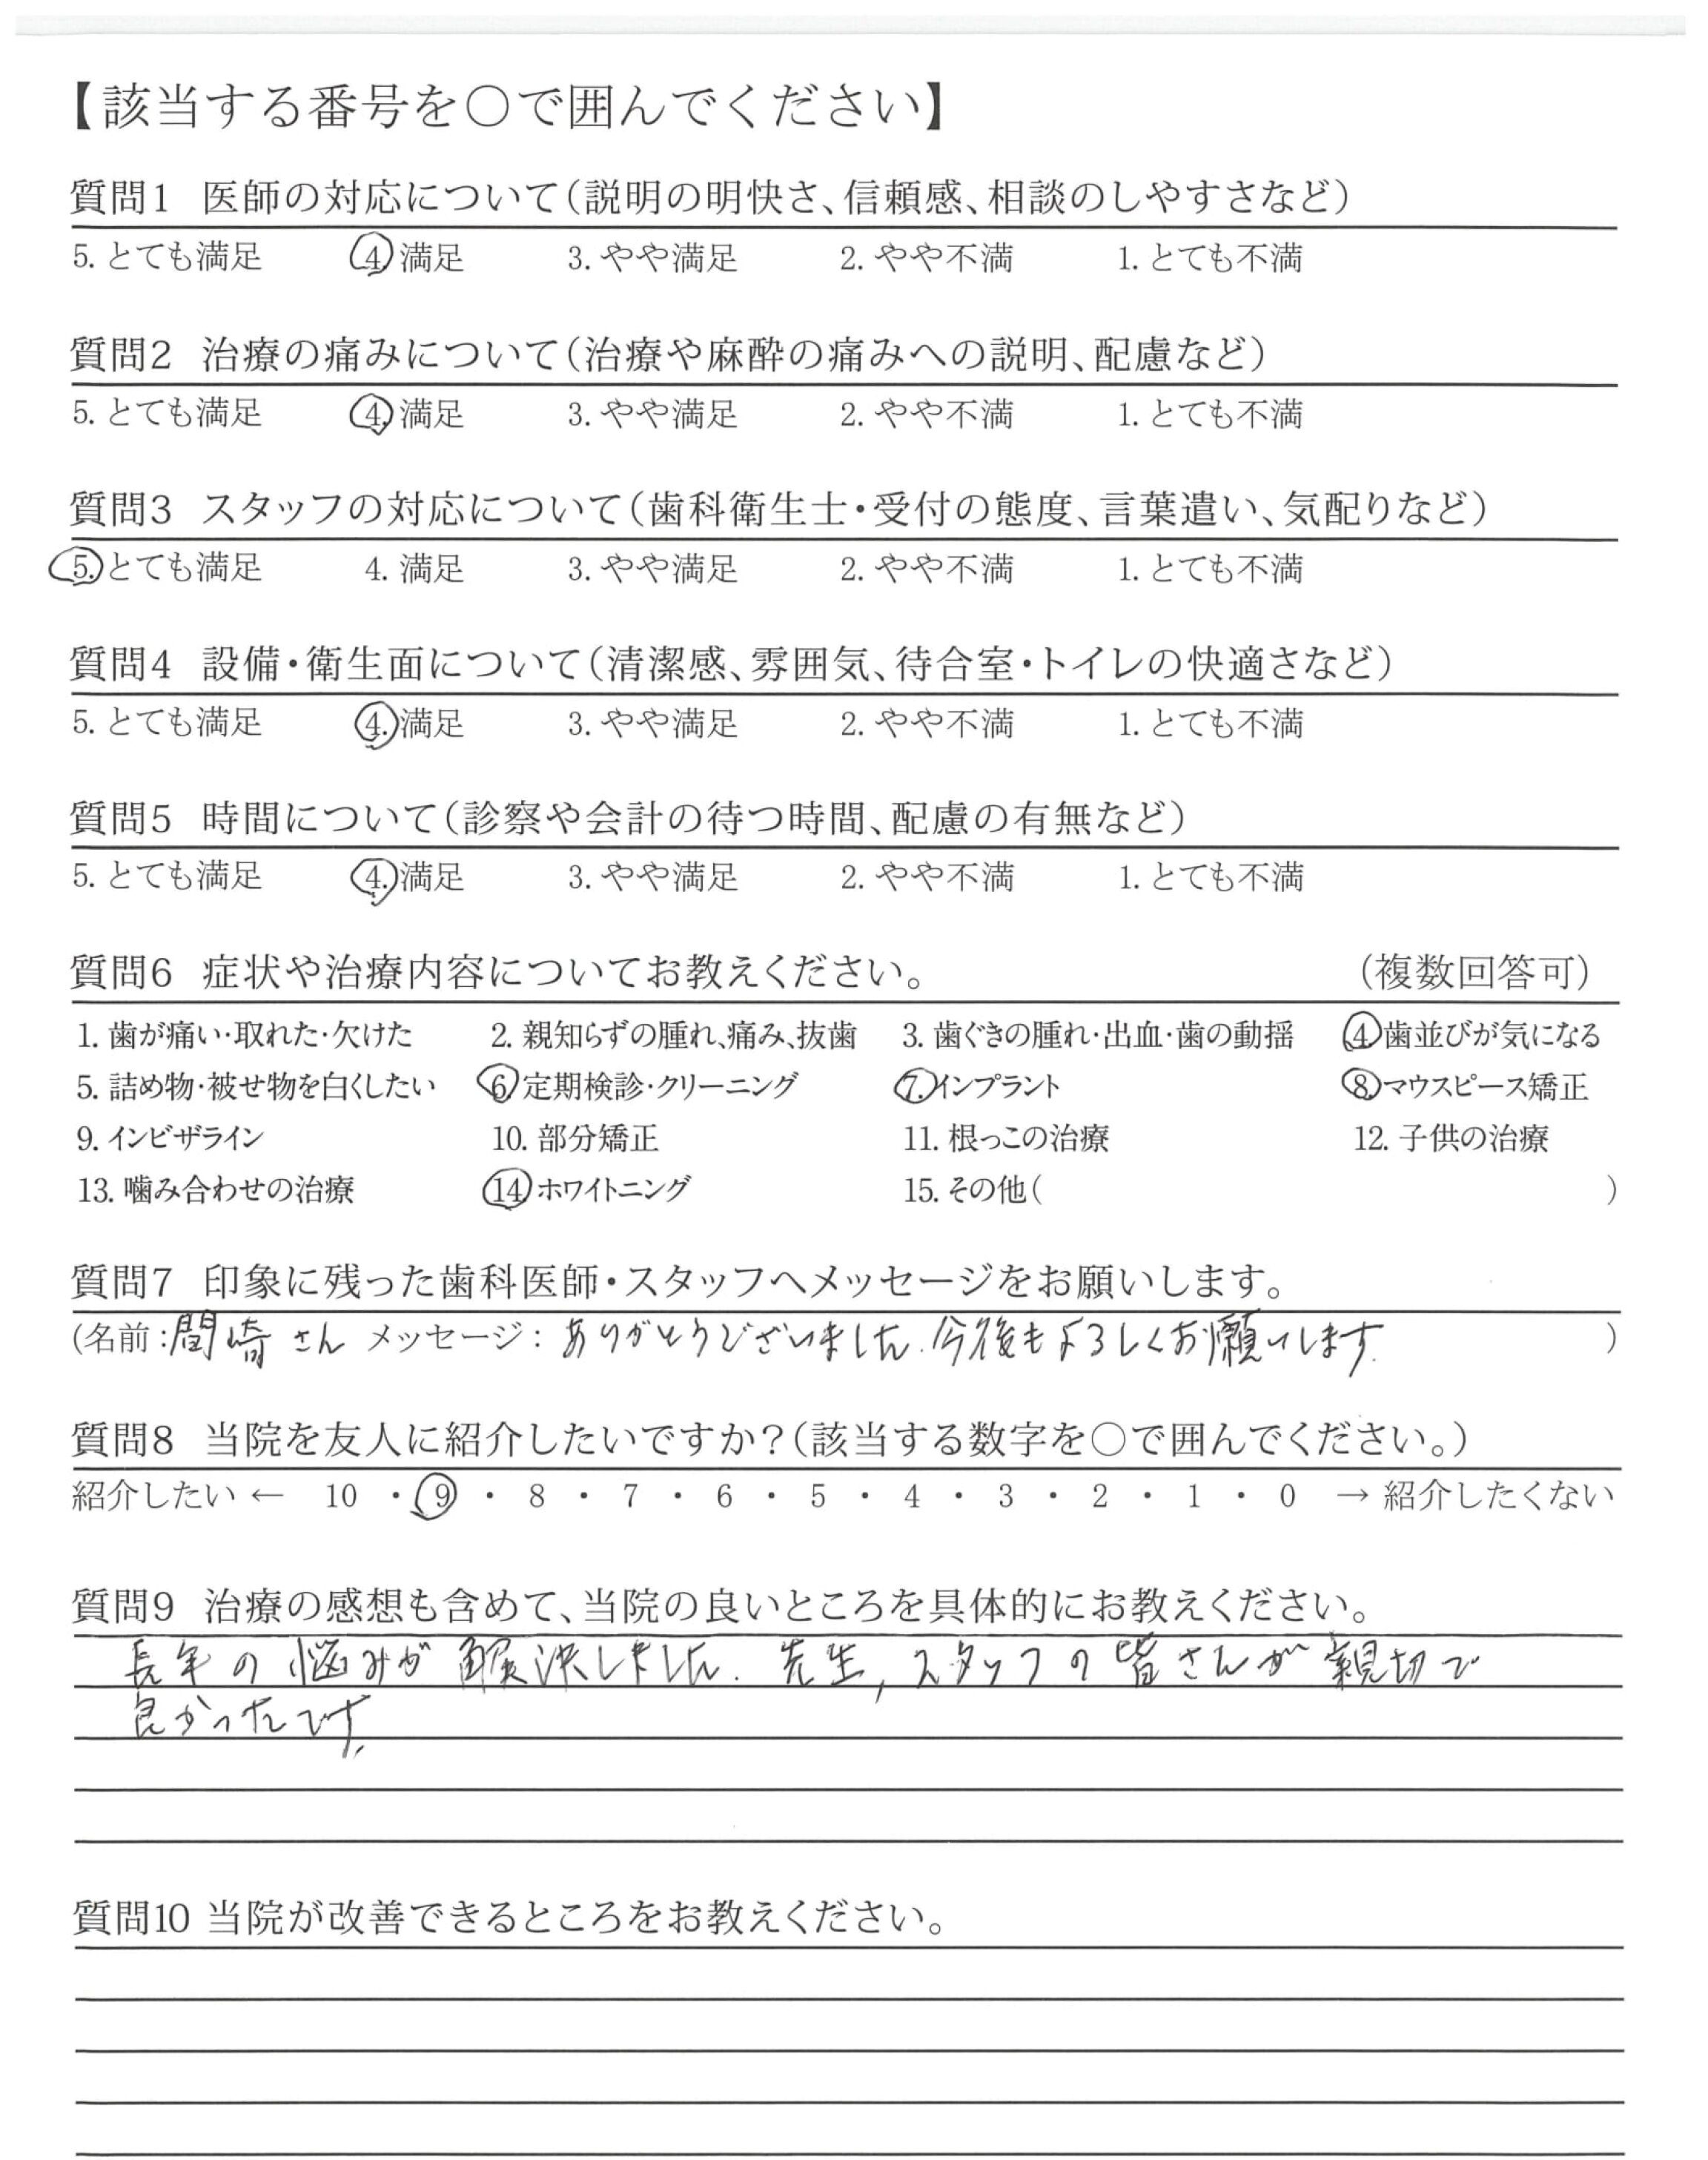 【該当する番号を○で囲んでください】
質問1 医師の対応について(説明の明快さ、信頼感、相談のしやすさなど)
5. とても満足 4. 満足 3. やや満足 2. やや不満 1. とても不満
質問2 治療の痛みについて(治療や麻酔の痛みへの説明、配慮など)
5. とても満足 4. 満足 3. やや満足 2. やや不満 1. とても不満
質問3 スタッフの対応について(歯科衛生士・受付の態度、言葉遣い、気配りなど)
5. とても満足 4. 満足 3. やや満足 2. やや不満 1. とても不満
質問4 設備・衛生面について(清潔感、雰囲気、待合室・トイレの快適さなど)
5. とても満足 4. 満足 3. やや満足 2. やや不満 1. とても不満
質問5 時間について(診察や会計の待つ時間、配慮の有無など)
5. とても満足 4. 満足 3. やや満足 2. やや不満 1. とても不満
質問6 症状や治療内容についてお教えください。 (複数回答可)
1. 歯が痛い・取れた・欠けた 2. 親知らずの腫れ、痛み、抜歯 3. 歯ぐきの腫れ・出血・歯の動揺 4. 歯並びが気になる
5. 詰め物・被せ物を白くしたい 6. 定期検診・クリーニング 7. インプラント 8. マウスピース矯正
9. インビザライン 10. 部分矯正 11. 根っこの治療 12. 子供の治療
13. 噛み合わせの治療 14. ホワイトニング 15. その他( )
質問7 印象に残った歯科医師・スタッフへメッセージをお願いします。
(名前:間崎さん メッセージ: ありがとうございました.今後もよろしくお願いします. )
質問8 当院を友人に紹介したいですか?(該当する数字を○で囲んでください。)
紹介したい ← 10 ・ 9 ・ 8 ・ 7 ・ 6 ・ 5 ・ 4 ・ 3 ・ 2 ・ 1 ・ 0 → 紹介したくない
質問9 治療の感想も含めて、当院の良いところを具体的にお教えください。
長年の悩みが解決しました. 先生,スタッフの皆さんが親切で
良かったです.
質問10 当院が改善できるところをお教えください。